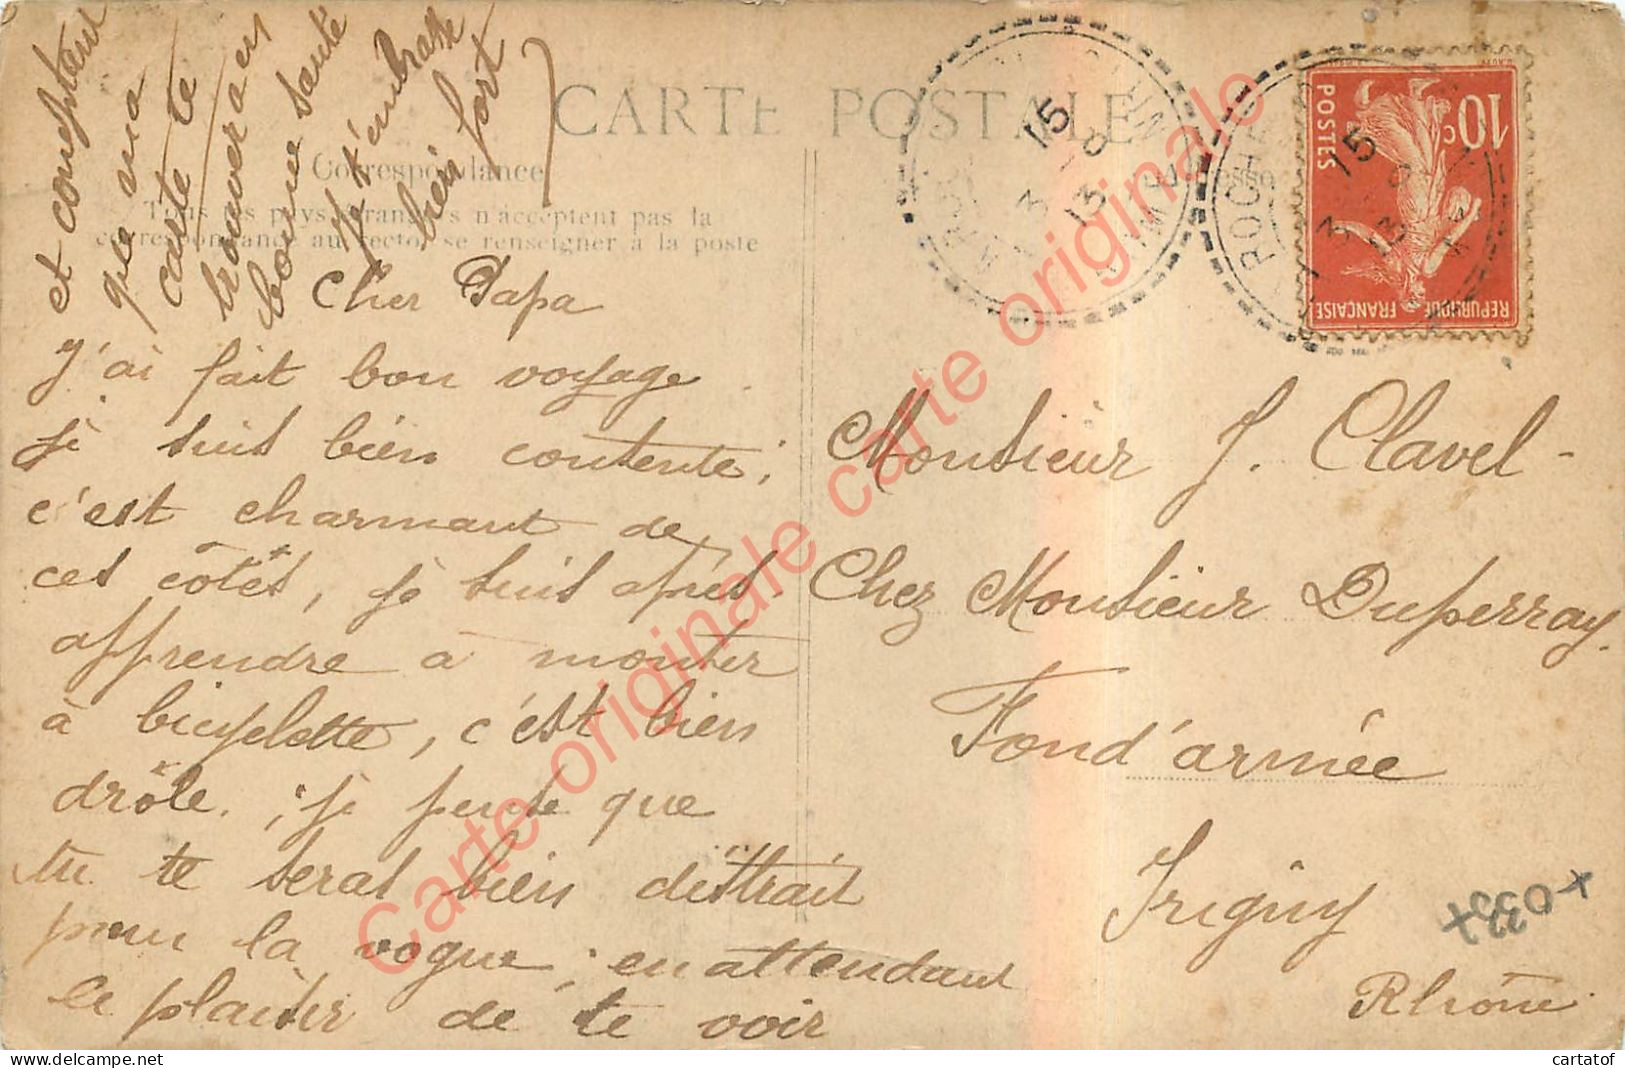 CARTE POSTALE
Correspondance
Tous les pays étrangers n'acceptent pas la
correspondance au recto, se renseigner à la poste
Cher Papa
J'ai fait bon voyage.
je suis bien contente ;
c'est charmant de
ces côtés, je suis après
apprendre à monter
à bicyclette, c'est bien
drôle. ; je pense que
tu te seras bien distrait
pour la vogue ; en attendant
le plaisir de te voir
et comptant
que ma
carte te
trouvera en
bonne santé
Je t'embrasse
bien fort
Monsieur J. Clavel -
Chez Monsieur Duperray.
Fond'armée
Irigny
Rhône.
15
13
ROCHE
15
13
10c
POSTES
REPUBLIQUE FRANÇAISE
Carte originale carte originale
cartatof